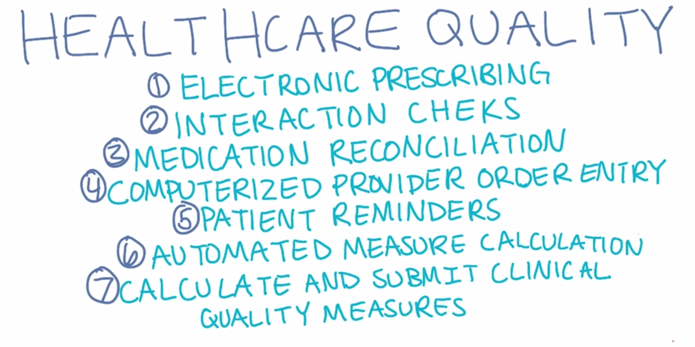 HEALTHCARE QUALITY
① ELECTRONIC PRESCRIBING
② INTERACTION CHEKS
③ MEDICATION RECONCILIATION
④ COMPUTERIZED PROVIDER ORDER ENTRY
⑤ PATIENT REMINDERS
⑥ AUTOMATED MEASURE CALCULATION
⑦ CALCULATE AND SUBMIT CLINICAL
QUALITY MEASURES